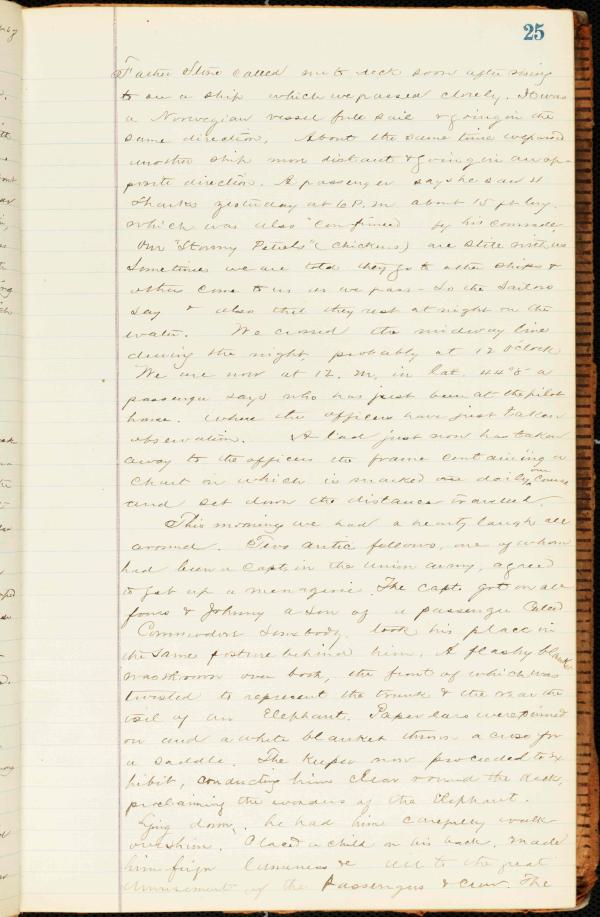 25
Father Stone called me to deck soon after rising
to see a ship which we passed closely. It was
a Norwegian vessel full sail & going in the
same direction. About the same time we passed
another ship more distant & going in an op-
posite direction. A passenger says he saw 4
Sharks yesterday at 6 P.M. about 15 ft long.
which was also confirmed by his comrade.
Our "Stormy Petrels" (chickens) are still with us
Sometimes we are told they go to other ships &
others come to us as we pass - So the Sailors
say & also that they rest at night on the
water. We crossed the midway line
during the night, probably at 12 o'clock
We are now at 12. M. in lat. 44° 8' a
passenger says who has just been at the pilot
house. where the officers have just taken
observation. A lad just now has taken
away to the officers the frame containing a
chart on which is marked our daily course
and set down the distance traveled.
This morning we had a hearty laugh all
around. Two antic fellows, one of whom
had been a Capt. in the Union army, agreed
to get up a menagerie. The Capt. got on all
fours & Johnny a son of a passenger called
Commodore Somebody, took his place in
the same posture behind him. A flashy blanket
was thrown over both, the front of which was
twisted to represent the trunk & the rear the
tail of an Elephant. Paper ears were pinned
on and a white blanket thrown across for
a saddle. The Keeper now proceeded to ex
hibit, conducting him clear around the deck,
proclaiming the wonders of the Elephant.
Lying down, he had him carefully walk
over him. Placed a child on his back, made
him feign lameness &c all to the great
amusement of the Passengers & Crew. The